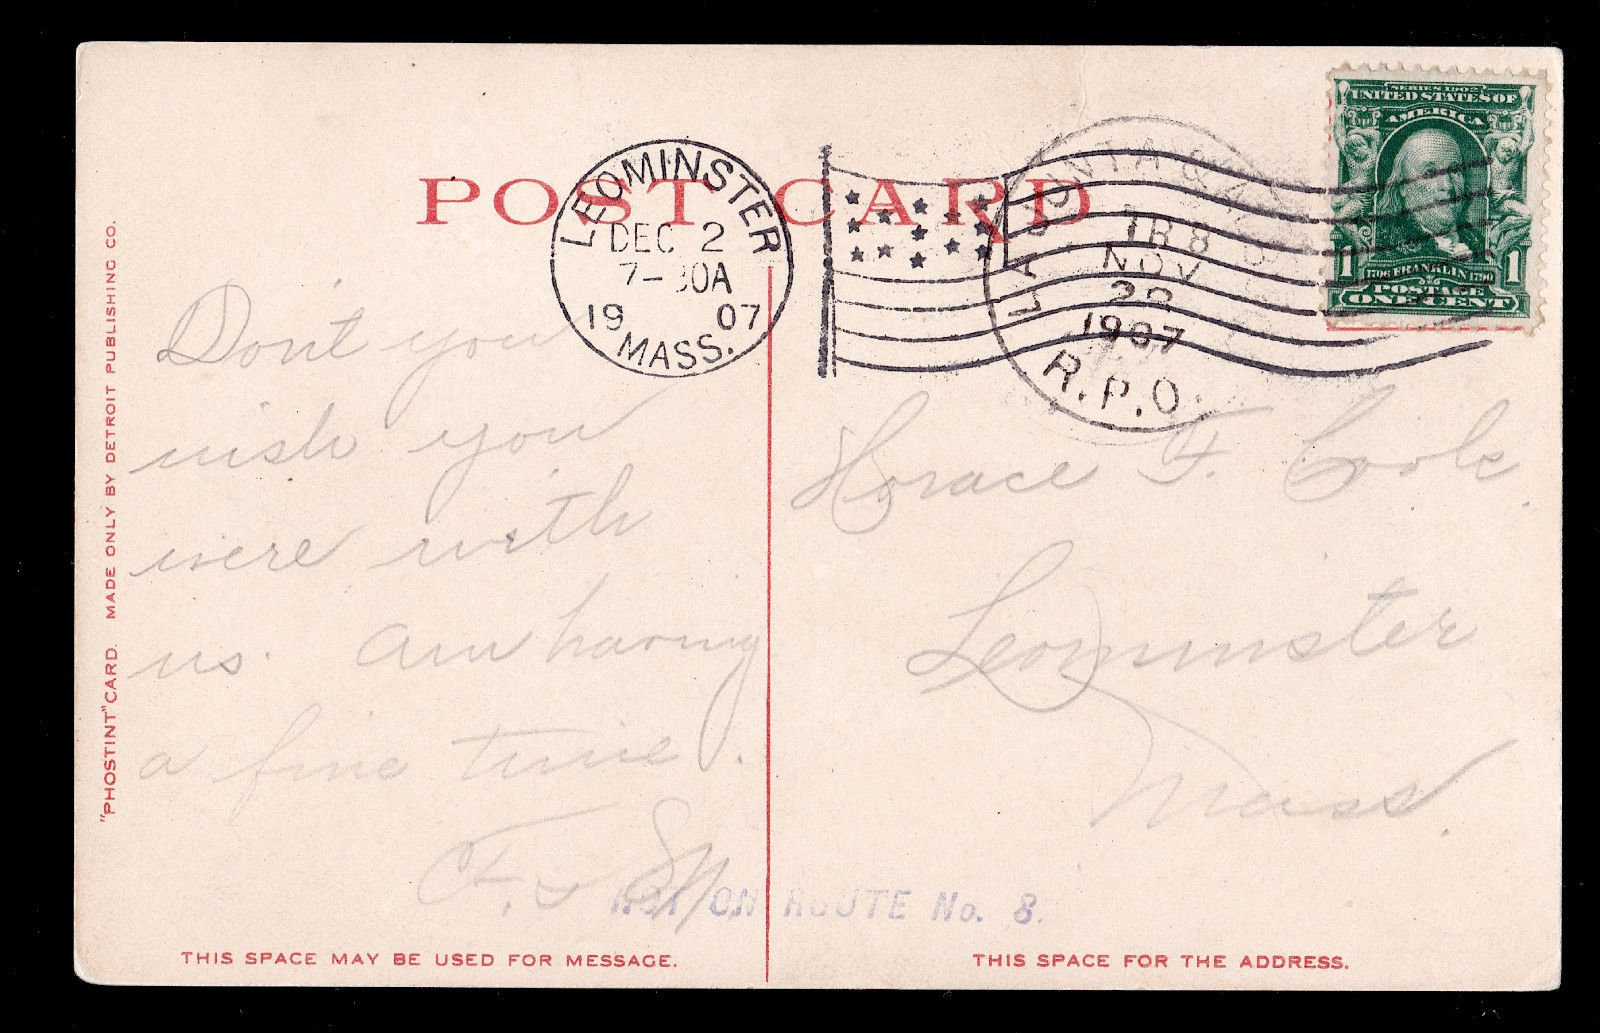 POST CARD
LEOMINSTER
DEC 2
7-30A
1907
MASS.
LA JUNTA &
TR 8
NOV
1907
R.P.O.
SERIES 1902
UNITED STATES OF
AMERICA
1 1706 FRANKLIN 1790 1
POSTAGE
ONE CENT
"PHOSTINT" CARD. MADE ONLY BY DETROIT PUBLISHING CO.
Don't you
wish you
were with
us. Am having
a fine time.
Horace F. Cook.
Leominster
Mass.
NOT ON ROUTE No. 8.
THIS SPACE MAY BE USED FOR MESSAGE.
THIS SPACE FOR THE ADDRESS.